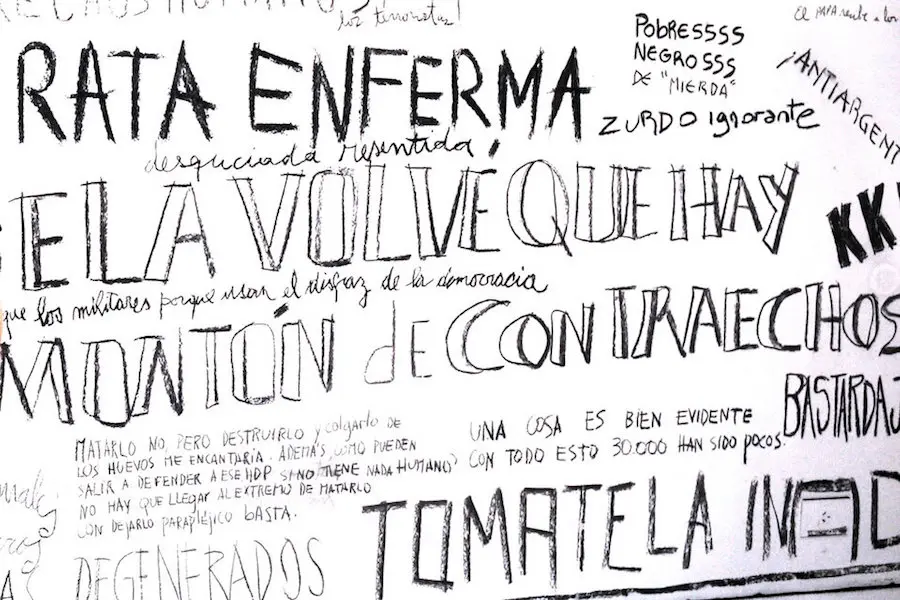 los terroristas!
El PAPA recibe a los
RATA ENFERMA
POBRESSSS
NEGROSSS
DE "MIERDA"
ZURDO ignorante
¡ANTIARGENT
desquiciada resentida
ELA VOLVÉ QUE HAY
KK
que los militares porque usan el disfraz de la democracia
MONTÓN dE CONTRAECHOS
BASTARDA
MATARLO NO, PERO DESTRUIRLO y colgarlo DE
LOS HUEVOS ME ENCANTARÍA. ADEMÁS, CÓMO PUEDEN
SALIR A DEFENDER A ESE HDP SI NO TIENE NADA HUMANO?
NO HAY QUE LLEGAR AL EXTREMO DE MATARLO
CON DEJARLO PARAPLÉJICO bASTA.
UNA COSA ES BIEN EVIDENTE
CON TODO ESTO 30.000 HAN SIDO POCOS.
TOMATELA
DEGENERADOS